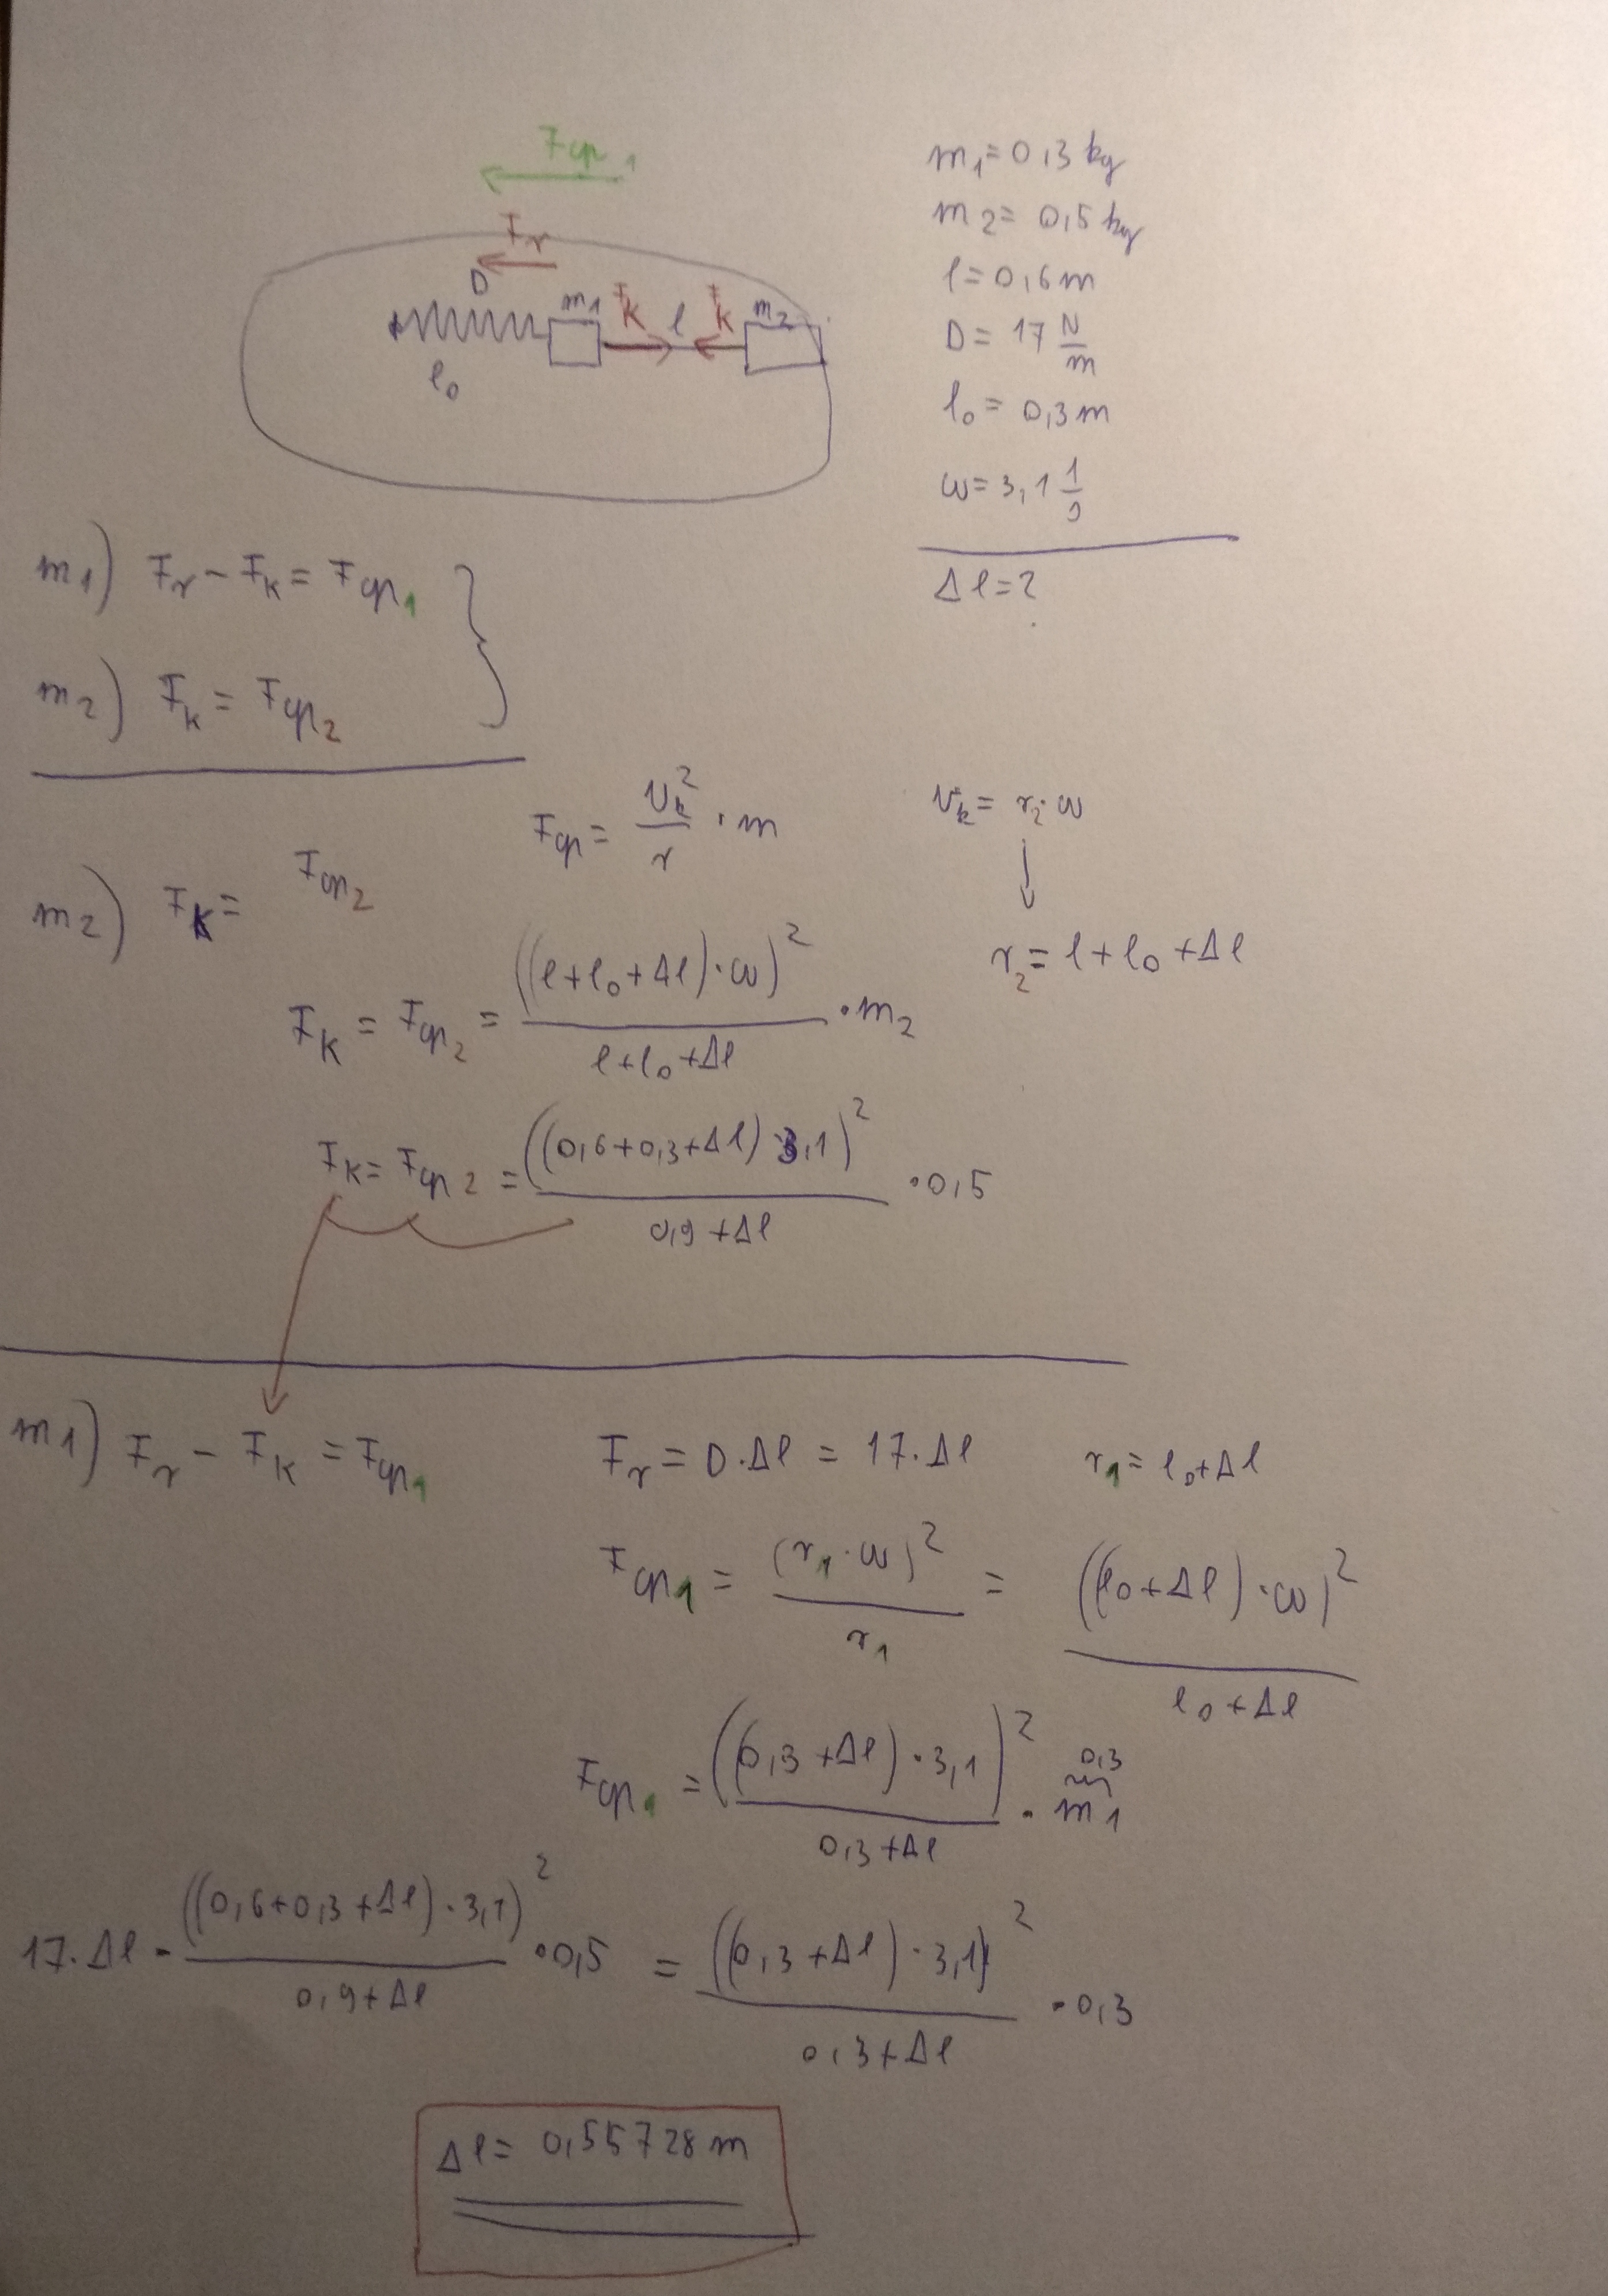 F cp 1
F r
D
m 1
F K
l
F K
m 2
l 0
m 1 = 0,3 kg
m 2 = 0,5 kg
l = 0,6 m
D = 17 N/m
l 0 = 0,3 m
ω = 3,1 1/s
Δl = ?
m 1) F r - F K = F cp 1 }
m 2) F K = F cp 2
F cp = v k ² / r · m
v k = r 2 · ω
m 2) F K = F cp 2
↓
r 2 = l + l 0 + Δl
F K = F cp 2 = ((l + l 0 + Δl) · ω)² / (l + l 0 + Δl) · m 2
F K = F cp 2 = ((0,6 + 0,3 + Δl) · 3,1)² / (0,9 + Δl) · 0,5
m 1) F r - F K = F cp 1
F r = D · Δl = 17 · Δl
r 1 = l 0 + Δl
F cp 1 = (r 1 · ω)² / r 1 = ((l 0 + Δl) · ω)² / (l 0 + Δl)
0,3
F cp 1 = ((0,3 + Δl) · 3,1)² / (0,3 + Δl) · m 1
17 · Δl - ((0,6 + 0,3 + Δl) · 3,1)² / (0,9 + Δl) · 0,5 = ((0,3 + Δl) · 3,1)² / (0,3 + Δl) · 0,3
Δl = 0,55728 m